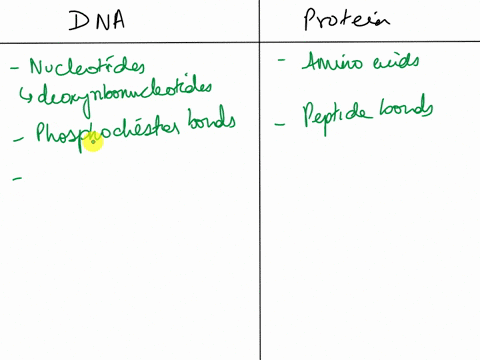 DNA
Protein
- Nucleotides
↳ deoxyribonucleotides
- Phosphodiester bonds
-
- Amino acids
- Peptide bonds